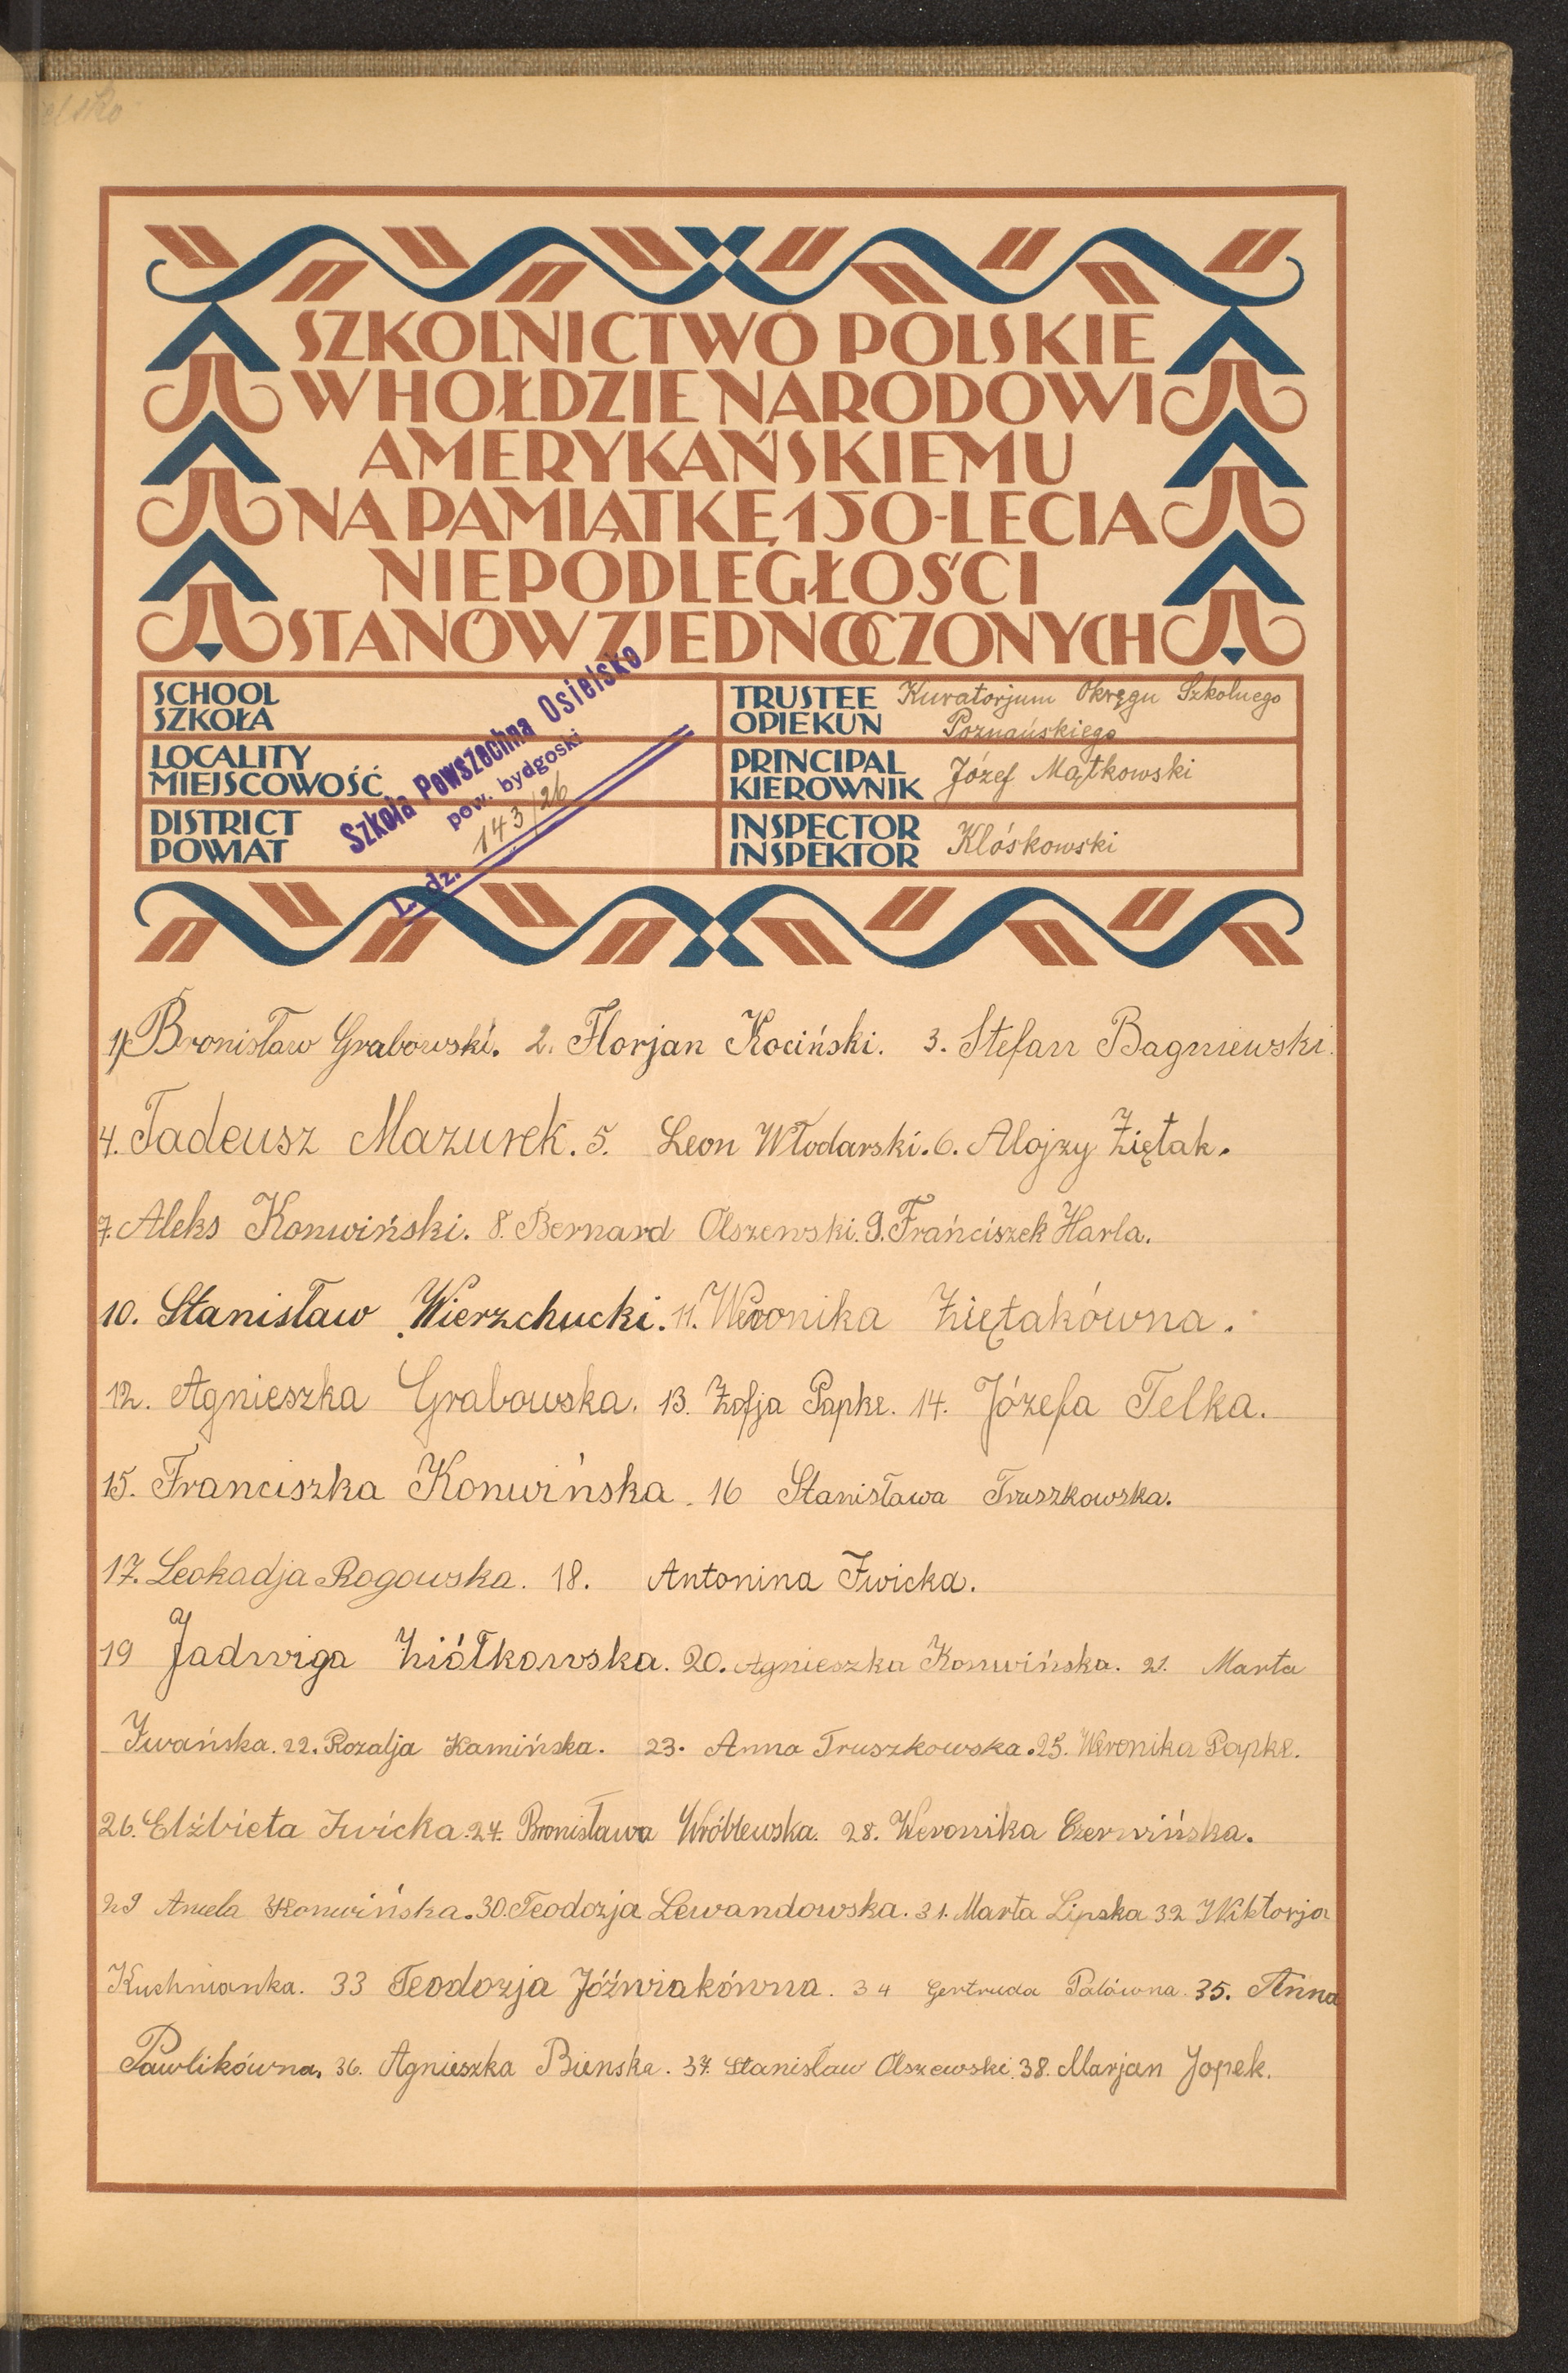 elsko
SZKOLNICTWO POLSKIE
W HOŁDZIE NARODOWI
AMERYKAŃSKIEMU
NA PAMIĄTKĘ 150-LECIA
NIEPODLEGŁOŚCI
STANÓW ZJEDNOCZONYCH
SCHOOL
SZKOŁA
LOCALITY
MIEJSCOWOŚĆ
DISTRICT
POWIAT
Szkoła Powszechna Osielsko
pow. bydgoski
L. dz. 143/26
TRUSTEE Kuratorjum Okręgu Szkolnego
OPIEKUN Poznańskiego
PRINCIPAL
KIEROWNIK Józef Mątkowski
INSPECTOR
INSPEKTOR Klóskowski
1) Bronisław Grabowski. 2. Florjan Kociński. 3. Stefan Bagniewski.
4. Tadeusz Mazurek. 5. Leon Włodarski. 6. Alojzy Ziętak.
7. Aleks Konwiński. 8. Bernard Olszewski. 9. Frańciszek Harla.
10. Stanisław Wierzchucki. 11. Weronika Ziętakówna.
12. Agnieszka Grabowska. 13. Zofja Papke. 14. Józefa Telka.
15. Franciszka Konwińska. 16 Stanisława Truszkowska.
17. Leokadja Rogowska. 18. Antonina Iwicka.
19 Jadwiga Ziółkowska. 20. Agnieszka Konwińska. 21. Marta
Iwańska. 22. Rozalja Kamińska. 23. Anna Truszkowska. 25. Weronika Papke.
26. Elżbieta Iwicka. 27. Bronisława Wróblewska. 28. Weronika Czerwińska.
29 Aniela Konwińska. 30. Teodozja Lewandowska. 31. Marta Lipska 32 Wiktorja
Kuchmanka. 33 Teodozja Jóźwiakówna. 34 Gertruda Palówna. 35. Anna
Pawlikówna. 36. Agnieszka Bienska. 37. Stanisław Olszewski. 38. Marjan Jopek.